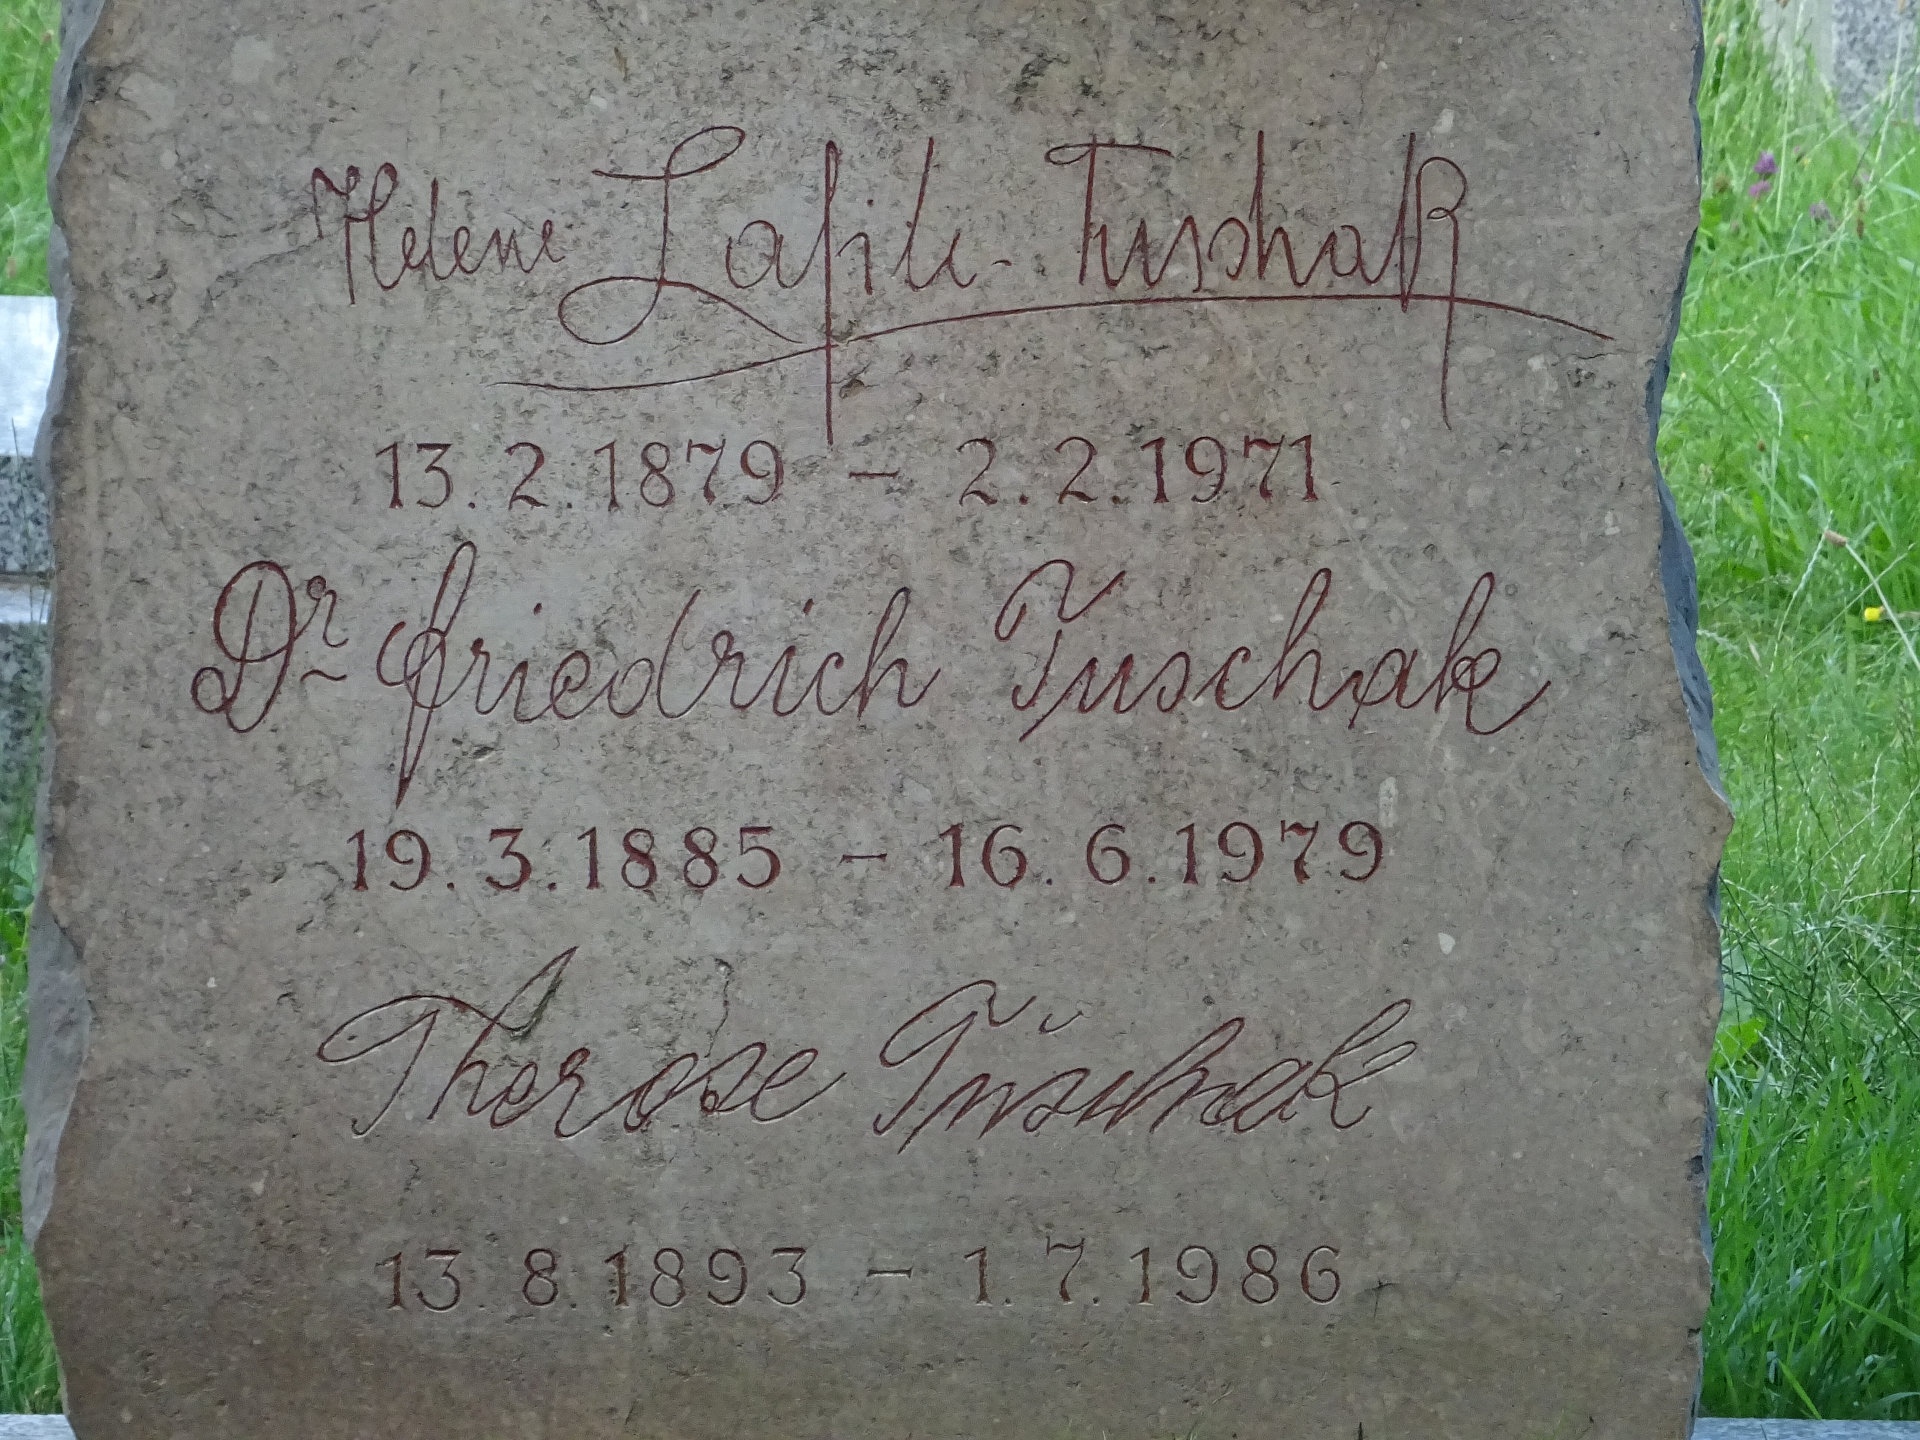 Helene Lafite-Tuschak
13.2.1879 – 2.2.1971
Dr. Friedrich Tuschak
19.3.1885 – 16.6.1979
Therese Tuschak
13.8.1893 – 1.7.1986